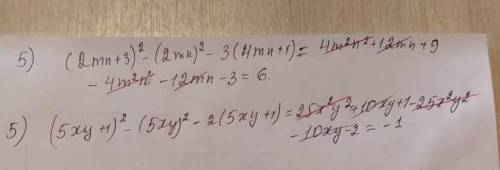 5). (2mn+3)² - (2mn)² - 3(4mn+1) = 4m²n² + 12mn + 9
- 4m²n² - 12mn - 3 = 6.
5) (5xy+1)² - (5xy)² - 2(5xy+1) = 25x²y² + 10xy + 1 - 25x²y²
- 10xy - 2 = -1